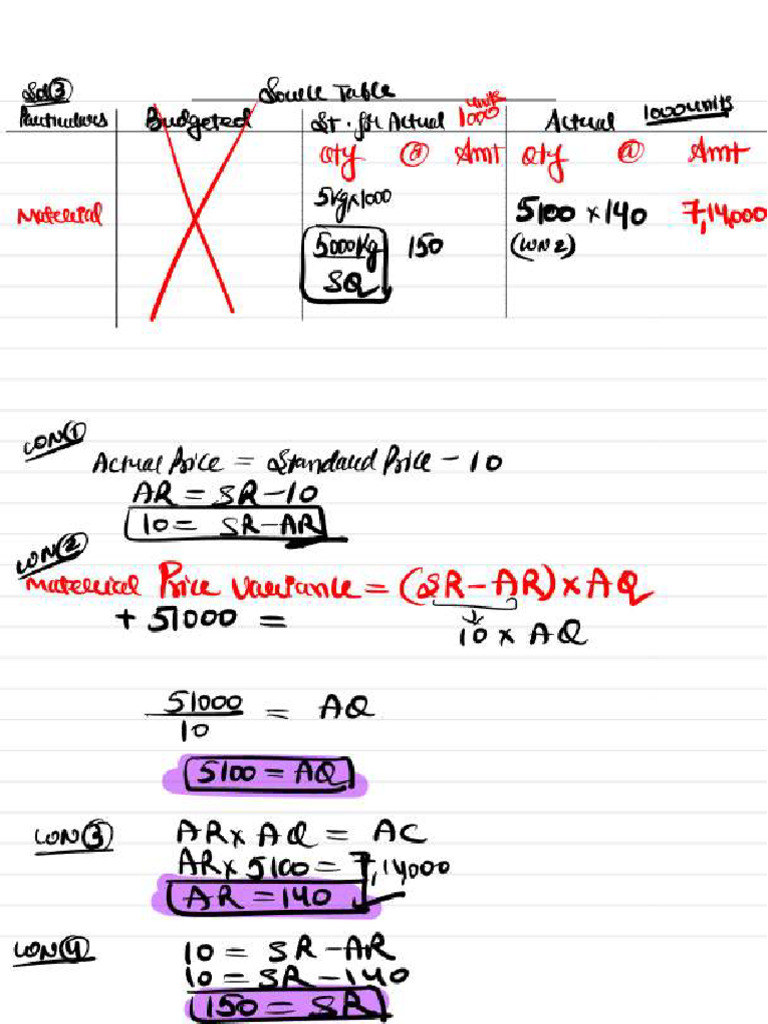 Sol ③
Source Table
Particulars Budgeted St. for Actual 1000 units Actual 1000 units
Qty @ Amt Qty @ Amt
Material 5kg×1000 5100 × 140 7,14,000
5000kg 150 (WN 2)
SQ
WN ①
Actual Price = Standard Price - 10
AR = SR - 10
10 = SR - AR
WN ②
Material Price Variance = (SR - AR) × AQ
+ 51000 = 10 × AQ
51000
10 = AQ
5100 = AQ
WN ③ AR × AQ = AC
AR × 5100 = 7,14000
AR = 140
WN ④ 10 = SR - AR
10 = SR - 140
150 = SR